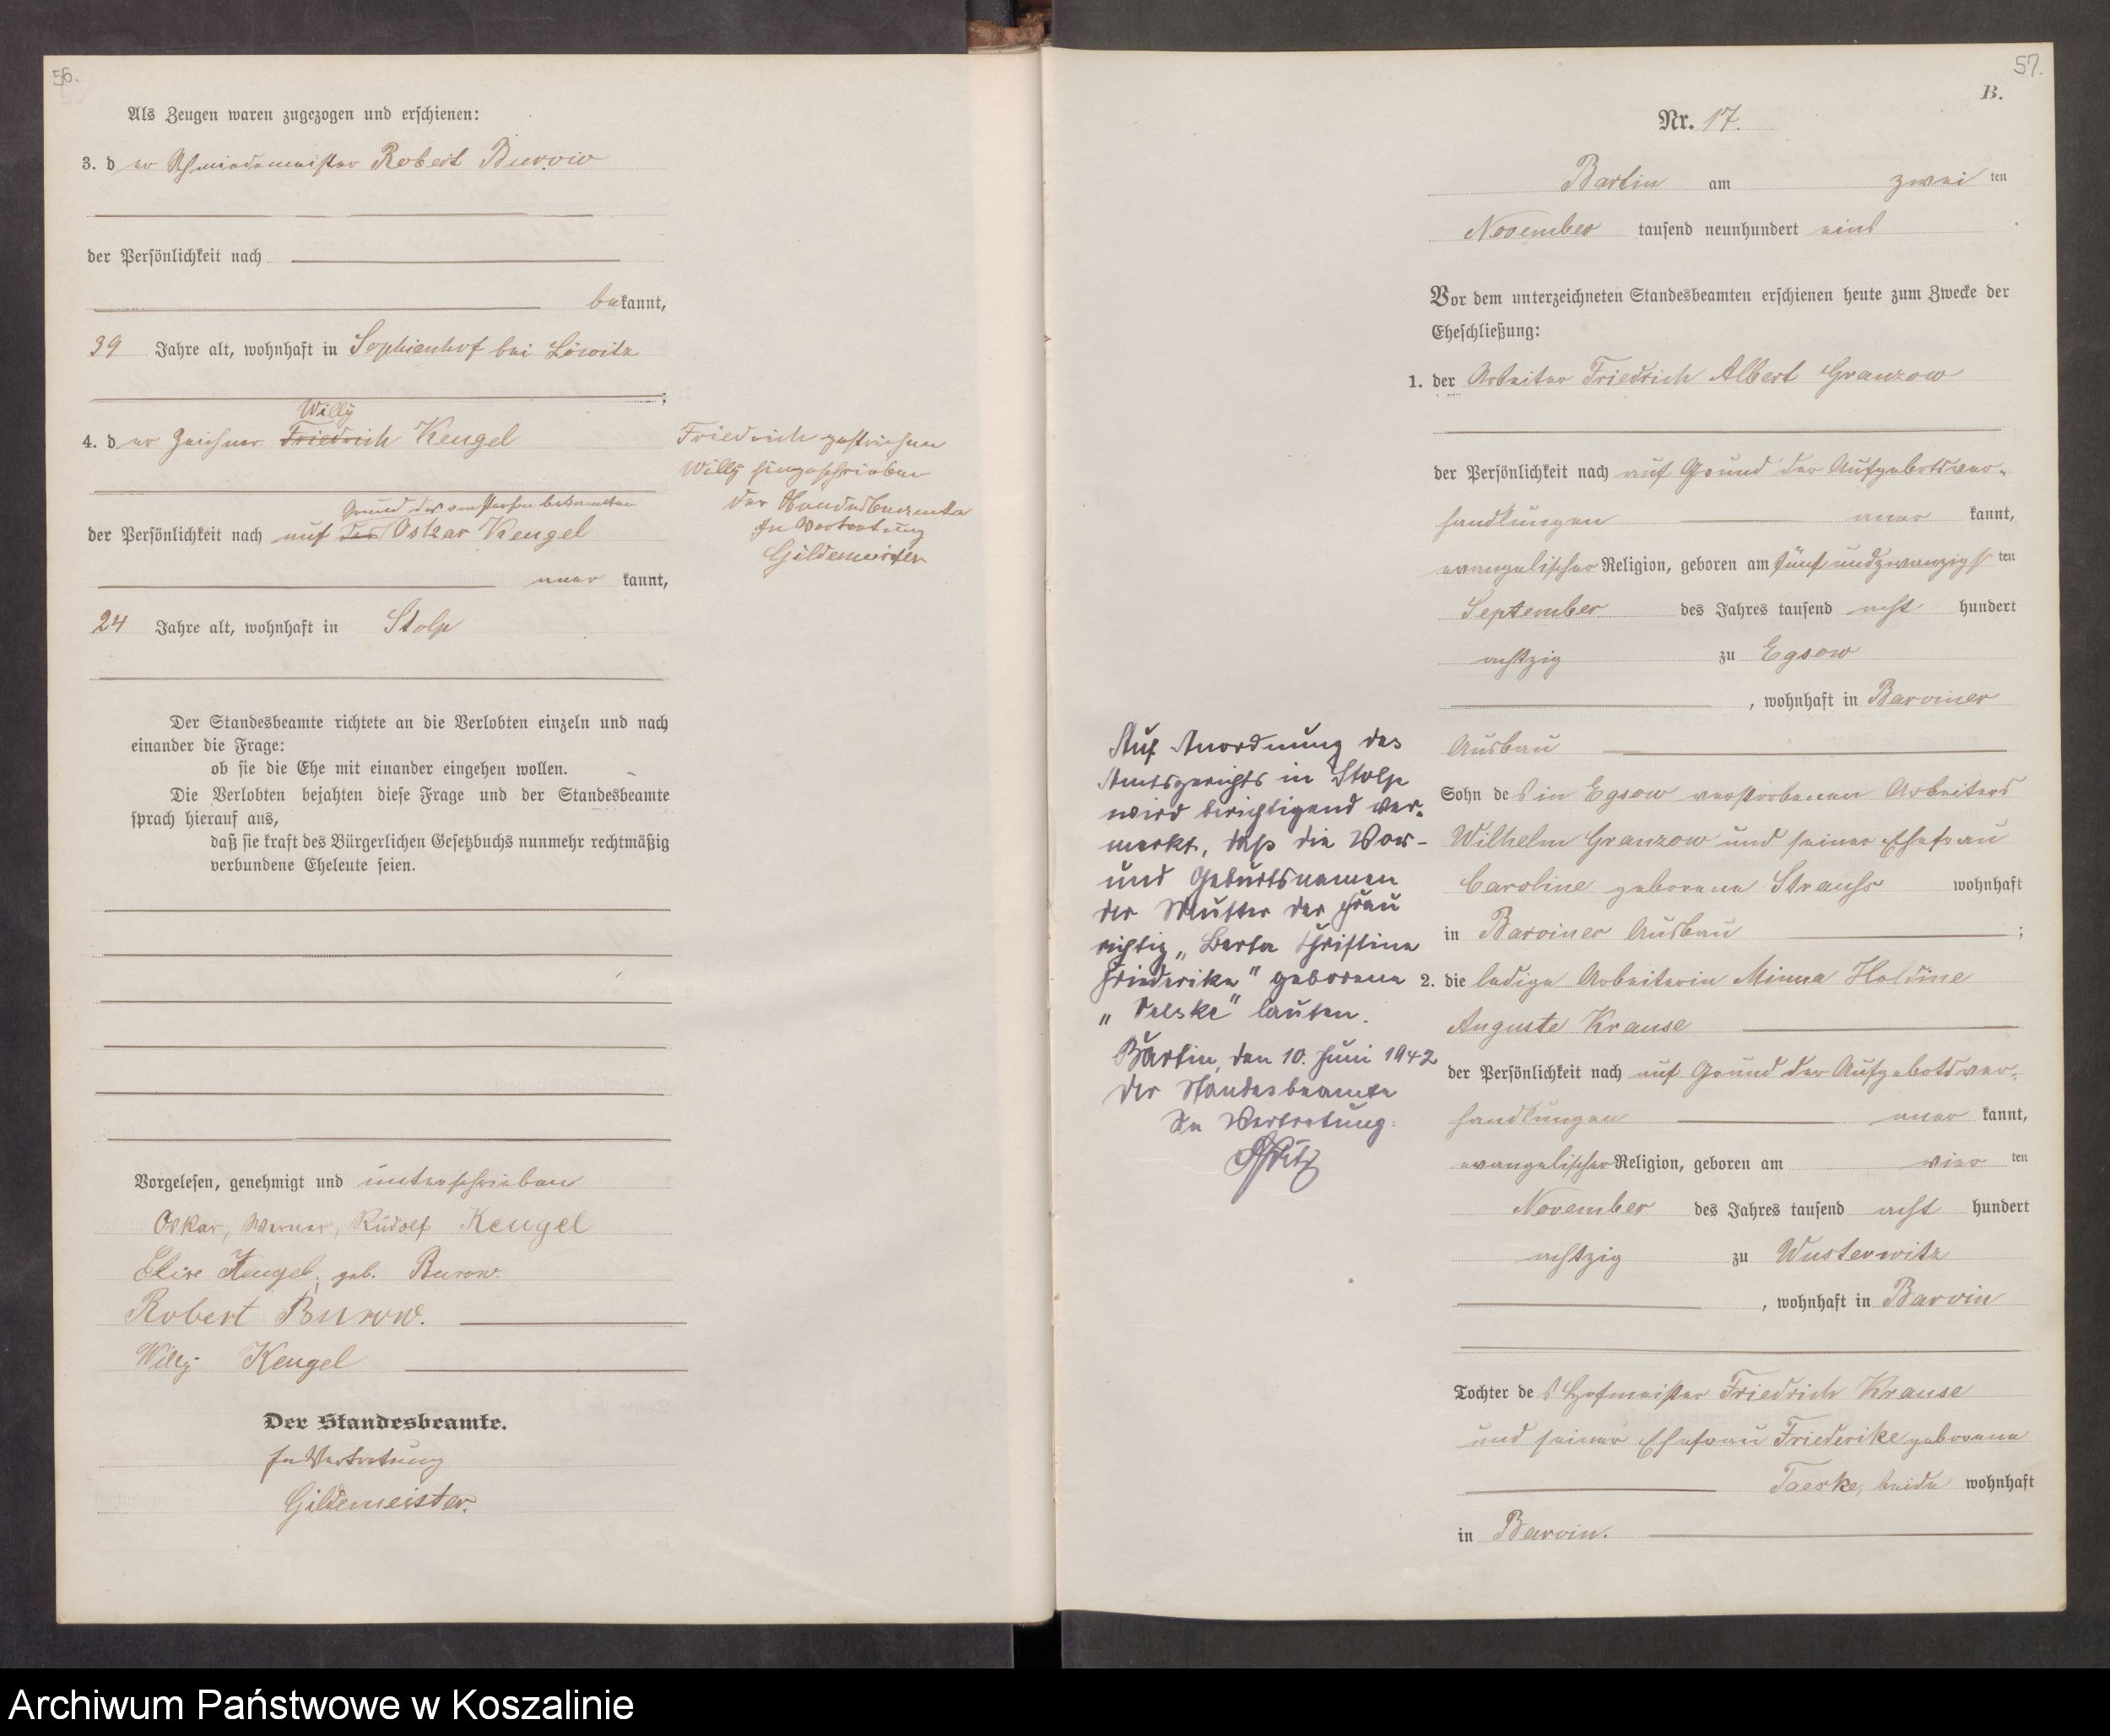 56.
Als Zeugen waren zugezogen und erschienen:
3. der Schmiedemeister Robert Burow
der Persönlichkeit nach
bekannt,
39 Jahre alt, wohnhaft in Sophienhof bei Löwitz
;
Willy
4. der Zeichner Friedrich Kengel
Grund des von Person bekannten
der Persönlichkeit nach auf des Oskar Kengel
aner kannt,
24 Jahre alt, wohnhaft in Stolp
Friedrich gestrichen
Willy hingeschrieben
Der Standesbeamte
In Vertretung
Gildemeister
Der Standesbeamte richtete an die Verlobten einzeln und nach
einander die Frage:
ob sie die Ehe mit einander eingehen wollen.
Die Verlobten bejahten diese Frage und der Standesbeamte
sprach hierauf aus,
daß sie kraft des Bürgerlichen Gesetzbuchs nunmehr rechtmäßig
verbundene Eheleute seien.
Vorgelesen, genehmigt und unterschrieben
Oskar, Werner, Rudolf Kengel
Elise Kengel, geb. Burow.
Robert Burow.
Willy Kengel
Der Standesbeamte.
In Vertretung
Gildemeister.
57.
B.
Nr. 17.
Bartin am zwei ten
November tausend neunhundert eins
Vor dem unterzeichneten Standesbeamten erschienen heute zum Zwecke der
Eheschließung:
1. der Arbeiter Friedrich Albert Granzow
der Persönlichkeit nach auf Grund der Aufgebotsver-
handlungen aner kannt,
evangelischer Religion, geboren am fünfundzwanzigs ten
September des Jahres tausend acht hundert
achtzig zu Egsow
, wohnhaft in Barviner
Ausbau
Sohn des in Egsow verstorbenen Arbeiters
Wilhelm Granzow und seiner Ehefrau
Caroline geborene Strauß wohnhaft
in Barviner Ausbau ;
2. die ledige Arbeiterin Minna Haldine
Auguste Krause
der Persönlichkeit nach auf Grund der Aufgebotsver-
handlungen aner kannt,
evangelischer Religion, geboren am vier ten
November des Jahres tausend acht hundert
achtzig zu Wusterwitz
, wohnhaft in Barvin
Tochter des Hofmeister Friedrich Krause
und seiner Ehefrau Friederike geborene
Taeske, beide wohnhaft
in Barvin.
Auf Anordnung des
Amtsgerichts in Stolp
wird berichtigend ver-
merkt, daß die Vor-
und Geburtsnamen
der Mutter der Frau
richtig „Berta Christine
Friederike" geborene
„Velske" lauten.
Bartin, den 10. Juni 1942
Der Standesbeamte
In Vertretung:
Archiwum Państwowe w Koszalinie